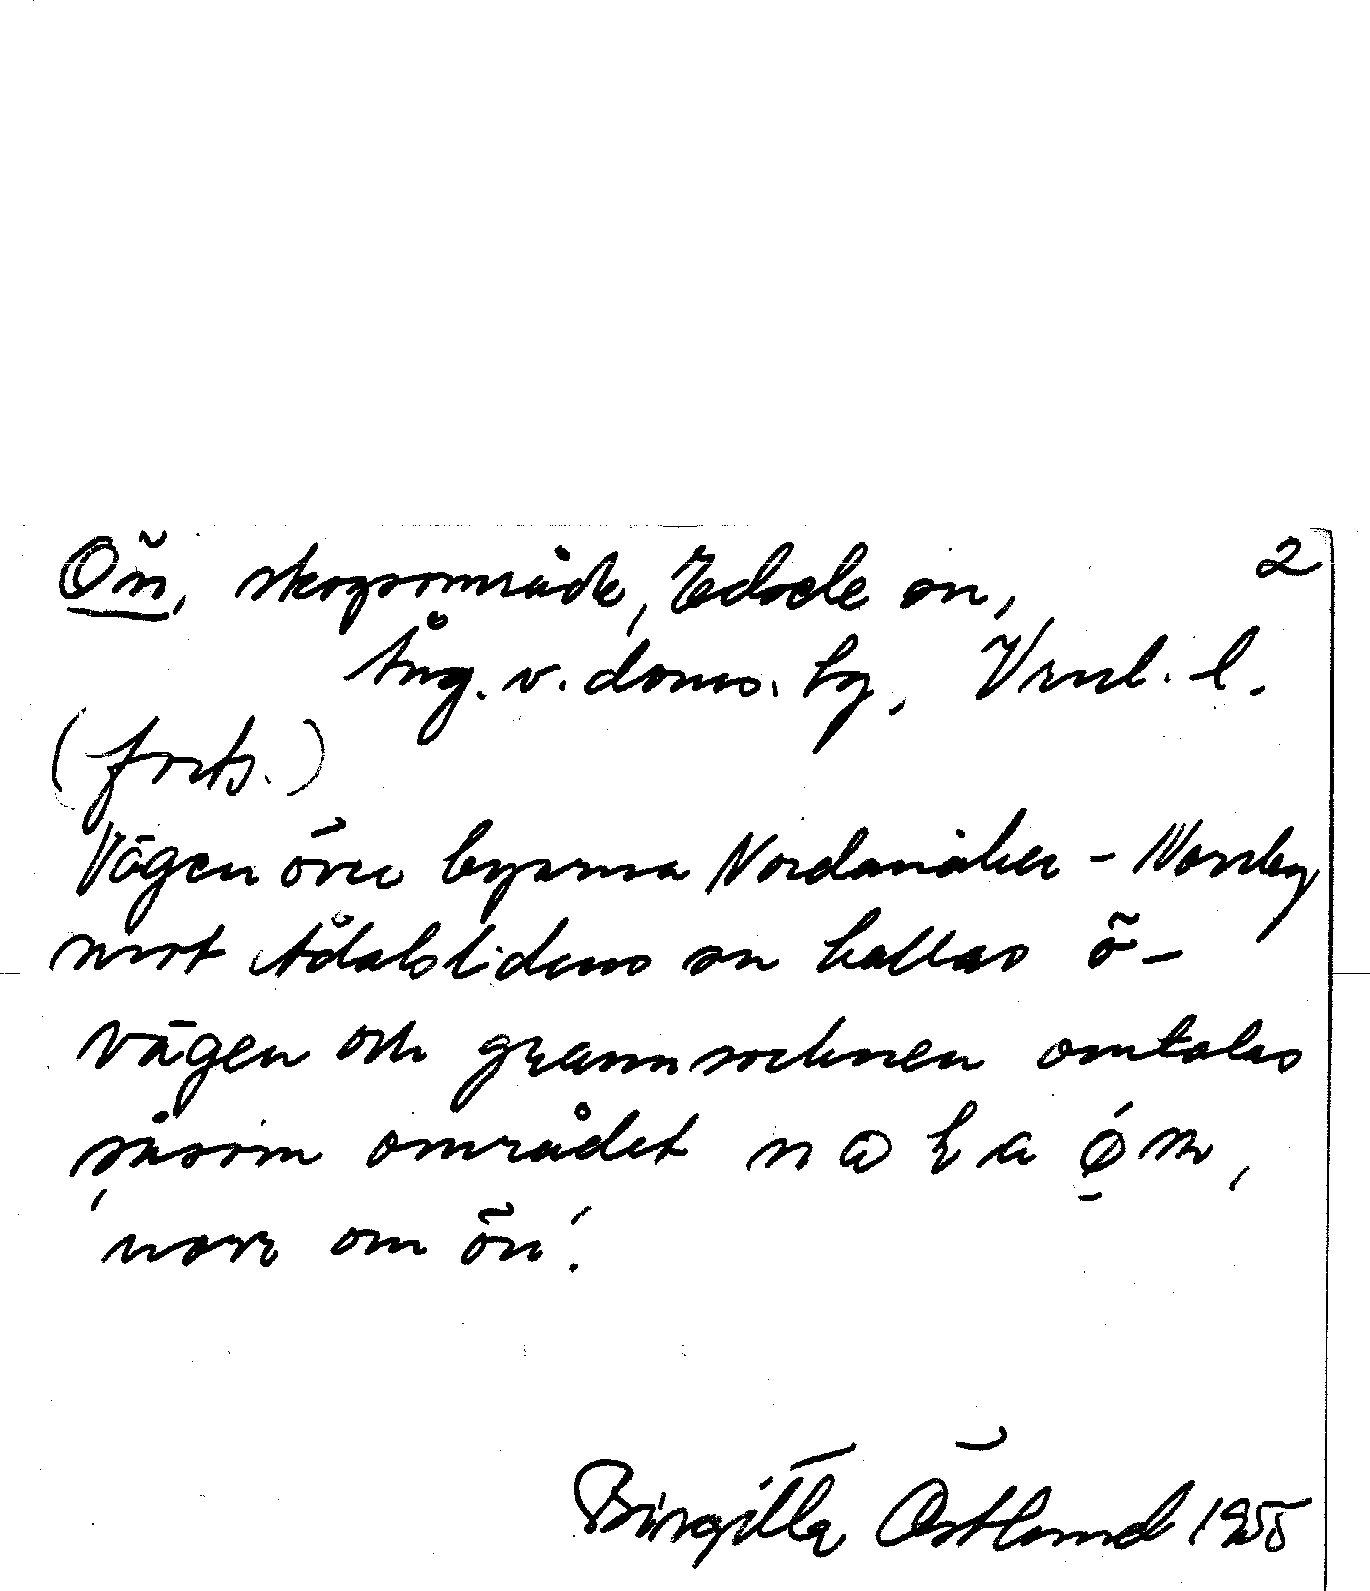 Ön, skogsområde, Edsele sn, 2
Ång. v. doms. hg, Vrnl. l.
(forts.)
Vägen över byarna Nordanåker - Norrby
mot Ådalslidens sn kallas ö-
vägen och grannsocknen omtalas
såsom området
'norr om ön'.
Birgitta Östlund 1955